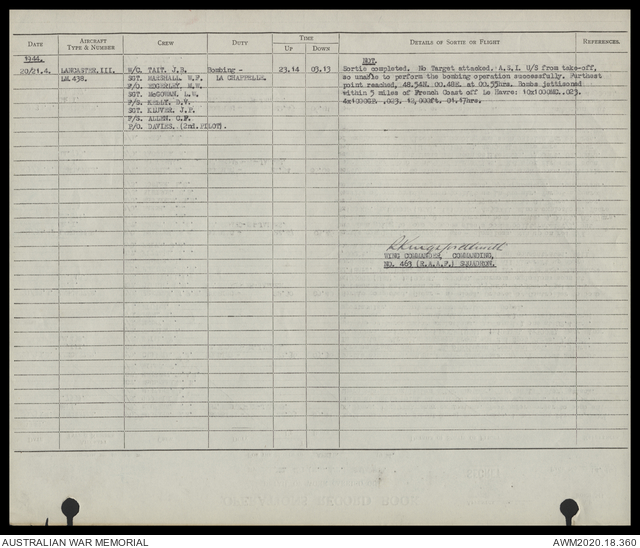 DATE
AIRCRAFT TYPE & NUMBER
CREW
DUTY
TIME
UP
DOWN
DETAILS OF SORTIE OR FLIGHT
REFERENCES.
1944.
20/21.4.
LANCASTER.III.
LM.438.
W/C. TAIT, J.B.
SGT. MARSHALL, W.F.
F/O. EDGERLEY, M.W.
SGT. McGOWAN, L.W.
F/S. KELLY, D.V.
SGT. KLUVER, J.F.
F/S. ALLEN, C.F.
P/O. DAVIES. (2nd. PILOT).
Bombing -
LA CHAPPELLE.
23.14
03.13
NOT.
Sortie completed. No Target attacked, A.S.I. U/S from take-off,
so unable to perform the bombing operation successfully. Furthest
point reached, 48.54N. 00.48E. at 00.55hrs. Bombs jettisoned
within 5 miles of French Coast off Le Havre: 10x1000MC. .023.
4x1000GP. .023. 12,000ft. 01.17hrs.
WING COMMANDER, COMMANDING,
NO. 463 (R.A.A.F.) SQUADRON.
AUSTRALIAN WAR MEMORIAL
AWM2020.18.360